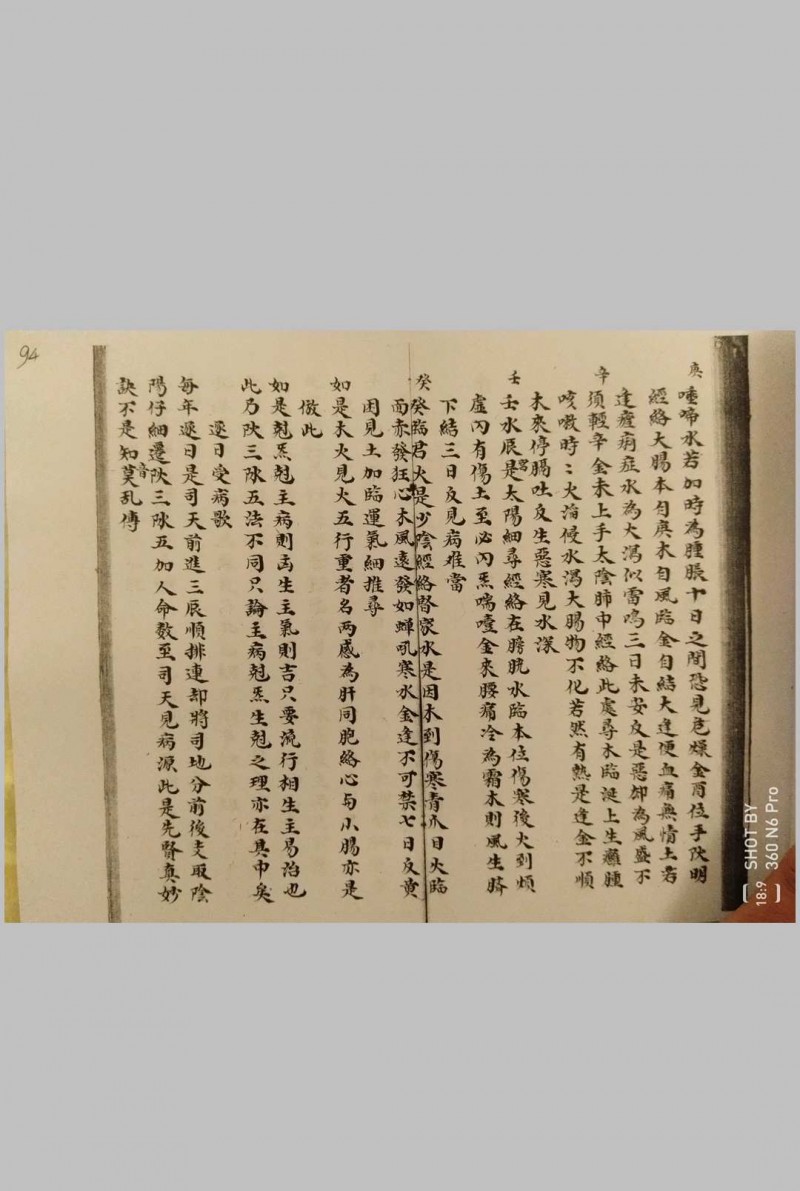 94
庚
唾啼水若加時為腫脹十日之間恐見危燥金酉位手陝明
經絡大腸本自庚木自風臨金自結大逢便血痛無情土若
逢瘧痢症水為大瀉似雷鳴三日未安反是惡却為風盛不
辛
須輕辛金未上手太陰肺中經絡此處尋木臨涎上生癰腫
咳嗽時〻火淪侵水瀉大腸物不化若然有熱是逢金不順
木來停腸吐反生惡寒見水漾
壬
壬水辰是宮太陽細尋經絡在膀胱水臨本位傷寒後火到煩
虛內有傷土至必內炁喘噎金來腰痛冷為霜木則風生臍
下結三日反見病难當
癸
癸臨君火是少陰經絡督家水是因木到傷寒青爪日火臨
而赤發狂心木風遠發如蟬吼寒水金逢不可禁七日反黄
困見土加臨運氣細推尋
如是未火見火五行重者名两感為肝同胞絡心与小腸亦是
倣此
如是尅炁尅主病則凶生主氣則吉只要流行相生主易治也
此乃陝三陝五法不同只論主病尅炁生尅之理亦在其中矣
逐日受病歌
每年逐日是司天前進三辰順排連却將司地分前後支取陰
陽仔細遷陝三陝五加人命数至司天見病源此是先賢真妙
訣不是知音莫乱傳
SHOT BY
360 N6 Pro
18:9